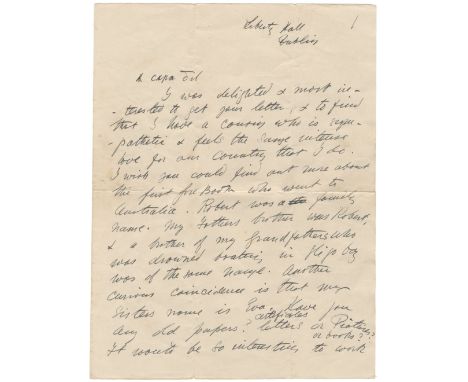 Liberty Hall
Dublin
1
A cara dil
I was delighted & most in-
-terested to get your letter, & to find
that I have a cousin who is sym-
-pathetic & feels the same intense
love for our country that I do.
I wish you could find out more about
the first Gore Booth who went to
Australia. Robert was a family
name. My Fathers brother was Robert,
& a brother of my Grandfathers who
was drowned boating in
was of the same name. Another
curious coincidence is that my
Sisters name is Eva. Have you
any old papers? letters or Pictures?
or books?
It would be so interesting to work